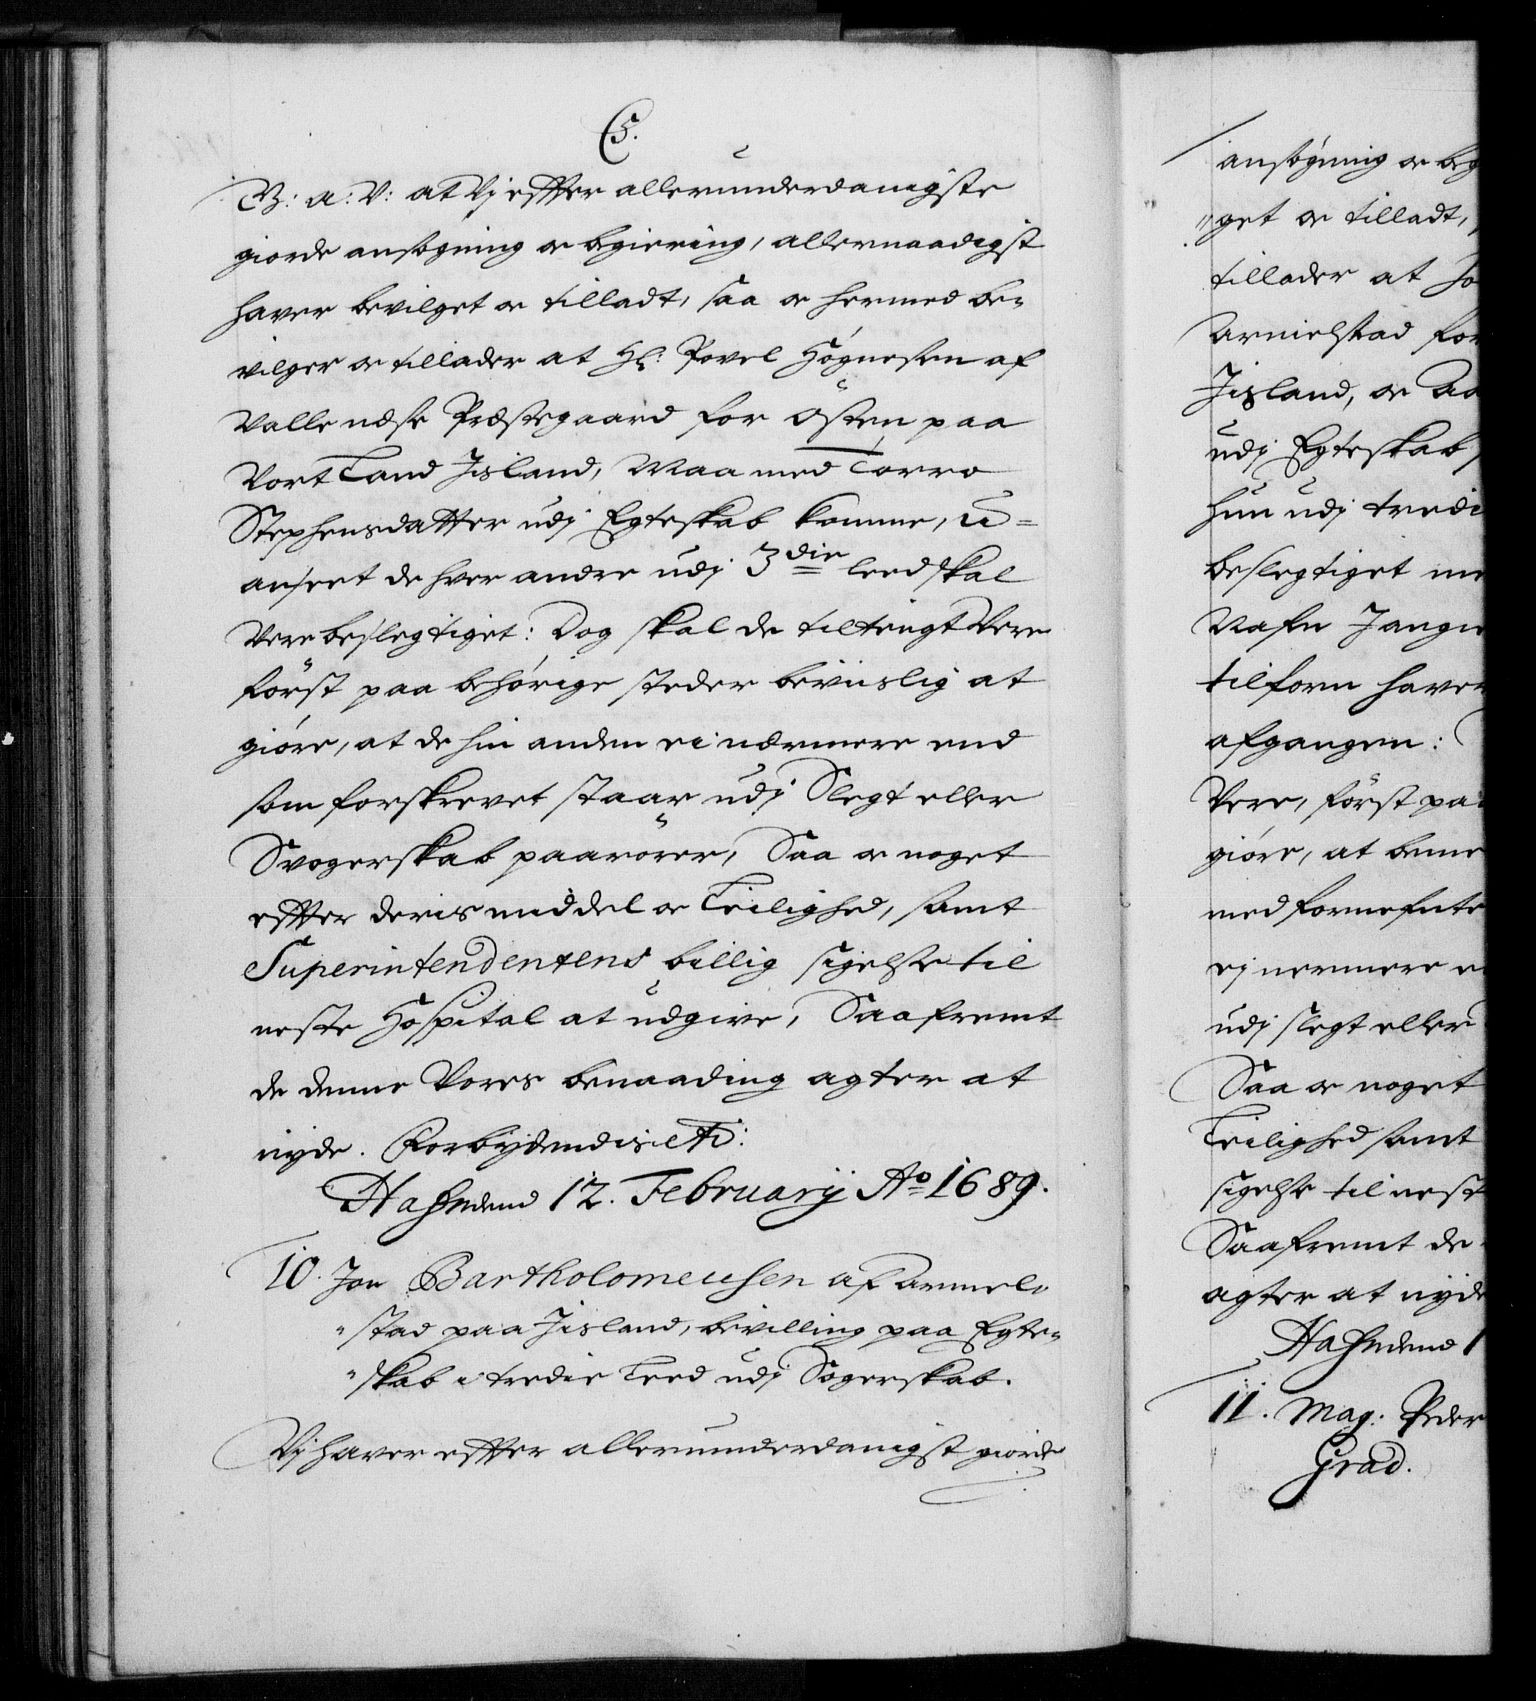 C5.
G: a: V: at Vj effter allerunderdanigste
giorde ansögning oc begiering, allernaadigst
haver bevilget oc tilladt, saa oc hermed be-
vilger oc tillader at Hr: Povel Högnesen af
Valle næse Præstegaard for østen paa
Vort Land Jisland, Maa med Torro
Stephensdatter udj Egteskab komme, u-
anseet de hver andre udj 3die leed skal
Vere beslegtiget: Dog skal de tiltengt Vere
först paa behörige steder beviislig at
giöre, at de hin anden ei nærmere end
som forskrevet staar udj Slegt eller
Svogerskab paarörer, Saa oc noget
effter deris middel oc Leilighed, samt
Superintendentens billig sigelse til
neste Hospital at udgive, Saafremt
de denne Vores benaading agter at
nyde. Forbydendis etc:
Hafn dend 12. Februarij Ao 1689.
10. Jon Bartholomeusen af Armel-
stad paa Jisland, bevilling paa Egte-
skab i tredie Leed udj Sogerskab.
Vj haver effter allerunderdanigst giorde
ansögning oc beg
get oc tilladt,
tillader at Jo
Armelstad for
Jisland, oc Aa
udj Egteskab
hun udj tredi
beslegtiget me
Nafn
tilforn haver
afgangen:
Vere, först paa
giöre, at benne
med fornefnte
ej nermere e
udj slegt eller
Saa oc noget
Leilighed samt
sigelse til nest
Saafremt de
agter at nyde
Hafn dend 1
11. Mag: Peder
Grad.